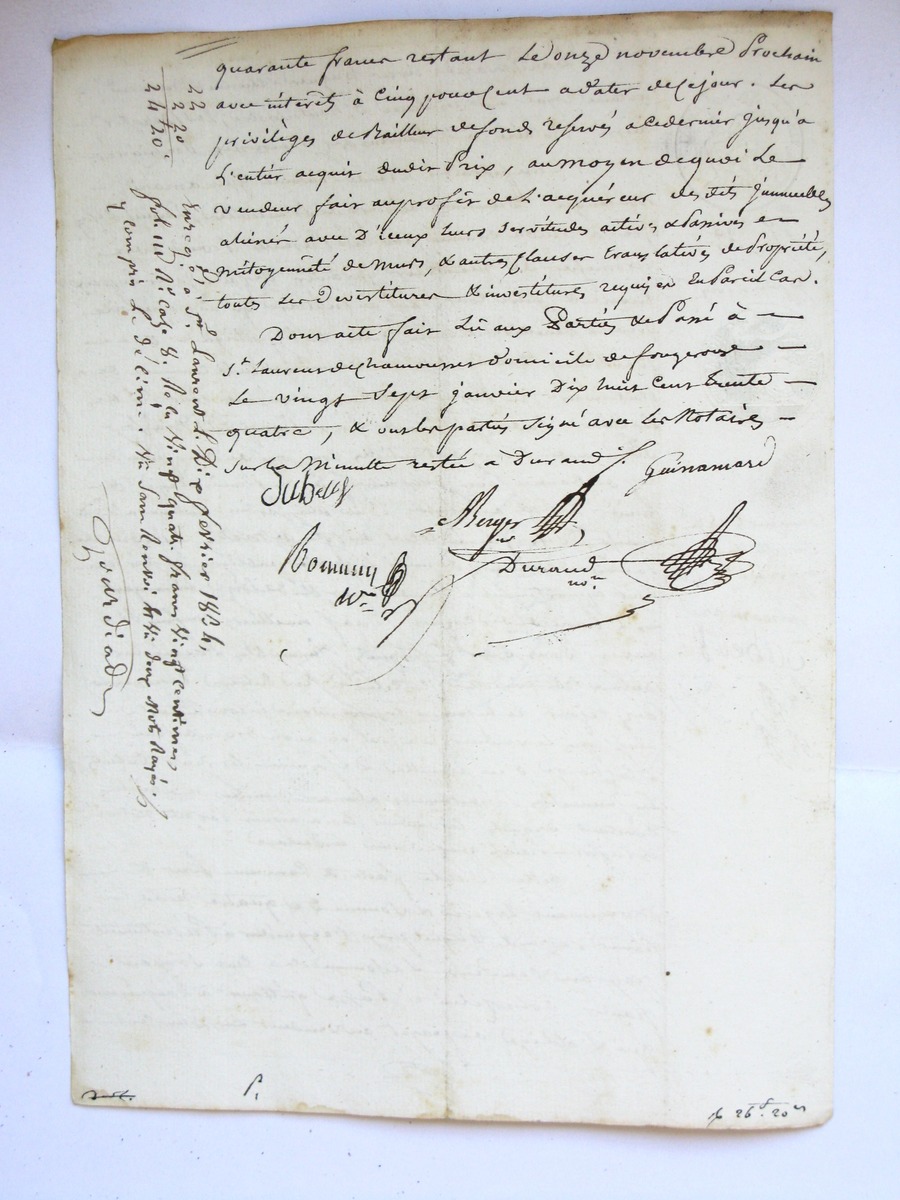 quarante francs restant Le onze novembre Prochain
avec intérêts à Cinq pour Cent a dater de Ce jour. Les
privilèges de Bailleur de fonds reservés a ce dernier jusqu'a
L'entier acquit dudit Prix, au moyen de quoi Le
vendeur fait au profit de L'acquéreur des dits jmmeubles
aliénés avec D'iceux leurs servitudes actives & Passives
mitoyenneté de murs, & autres Clauses translatives de Propriété,
toutes Les Devestitures & investitures requises En Pareil Cas.
Dont acte fait Lû aux Parties & Passé à
St. Laurent de Chamousset Domicile de
Le vingt Sept janvier Dix huit Cent trente
quatre, & ont les parties Signé avec les Notaires
Sur La Minutte restée à Durand.
Guinamard
Dubeuf
Berger
Durand
nore
22 20
2
24 20
Enregé. à St. Laurent L. Dix fevrier 1834,
fol. Case 8. Vingt quatre francs Vingt Centimes
y Compris Le décime. Vu Sans Renvoi deux Mots Rayés.
26f. 20c